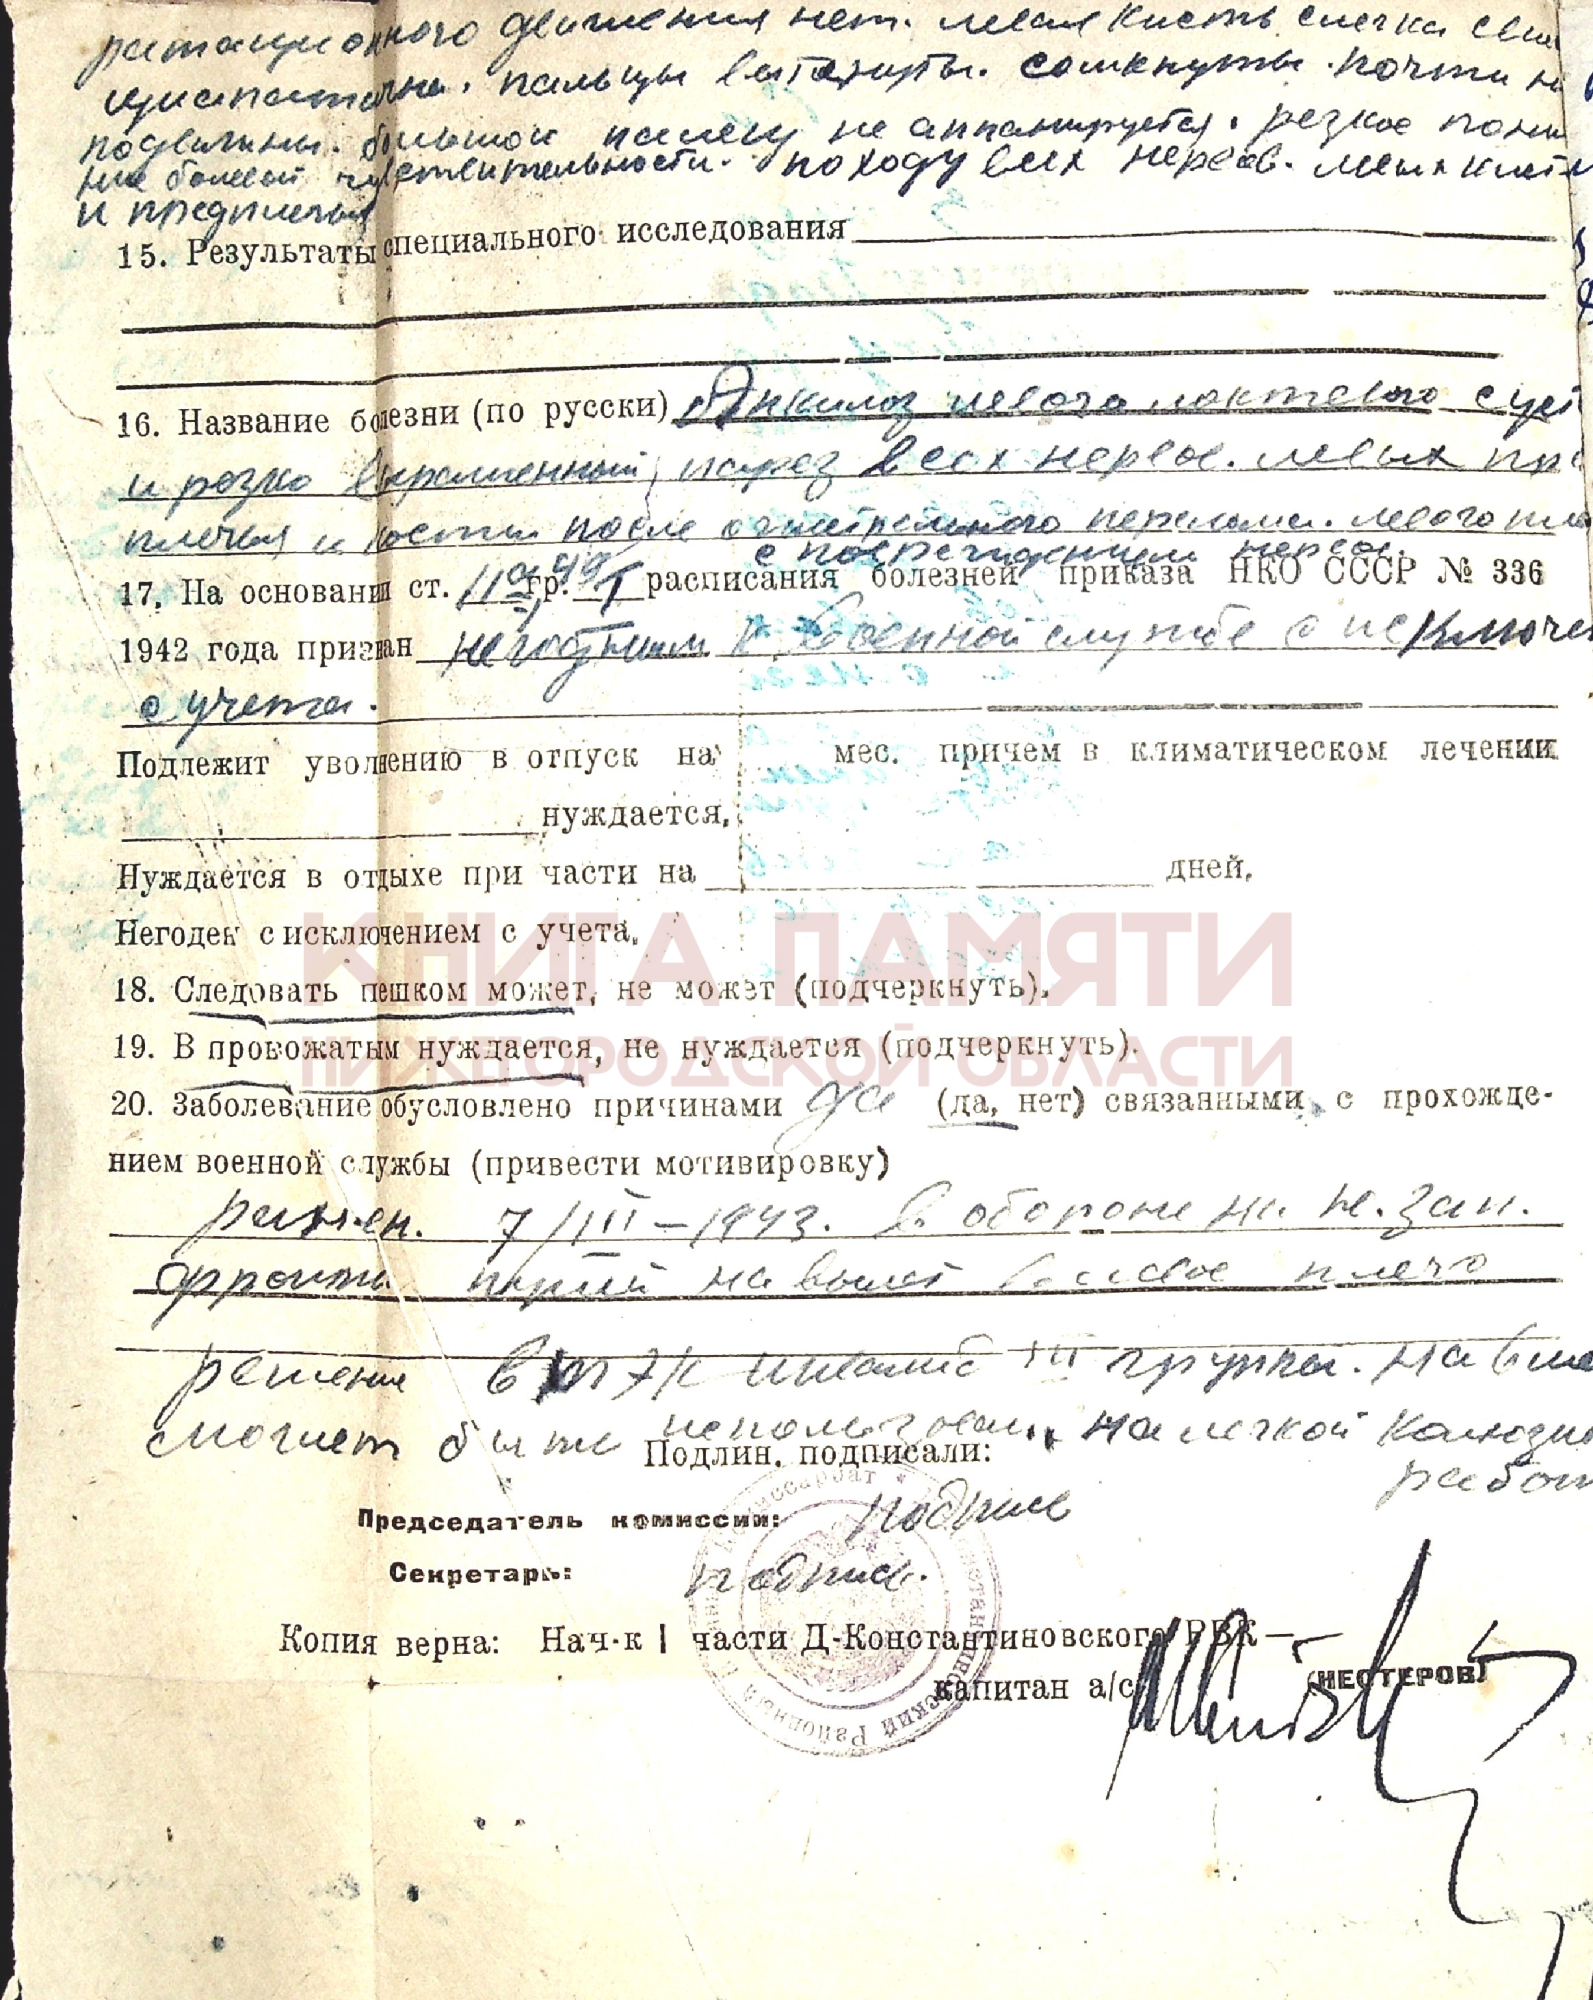 ротационного движения нет. левая кисть слегка
цианотична. пальцы вытянуты. сомкнуты. почти
подвижны. большой палец не аппанируется. резкое
ние болевой чувствительности. по ходу всех нервов. левых
и предплечья
15. Результаты специального исследования
16. Название болезни (по русски) Анкилоз левого локтевого суст
и резко выраженный парез всех нервов. левых пред
плечья и кисти после огнестрельного перелома. левого
с повреждением нервов.
17. На основании ст. гр. I расписания болезней приказа НКО СССР № 336
1942 года признан негодным к военной службе с исключен
с учета.
Подлежит уволнению в отпуск на мес. причем в климатическом лечении
нуждается.
Нуждается в отдыхе при части на дней.
Негоден с исключением с учета.
КНИГА ПАМЯТИ
18. Следовать пешком может, не может (подчеркнуть).
НИЖЕГОРОДСКОЙ ОБЛАСТИ
19. В провожатым нуждается, не нуждается (подчеркнуть).
20. Заболевание обусловлено причинами да (да, нет) связанными с прохожде-
нием военной службы (привести мотивировку)
ранен. 7/III-1943. в обороне на
фронте пулей на вылет в левое плечо
решение ВТЭК инвалид III группы.
может быть использован. на легкой
работ
Подлин. подписали:
Председатель комиссии: подпись
Секретарь: подпись.
Копия верна: Нач-к I части Д-Константиновского РВК —
капитан а/с (НЕСТЕРОВ)